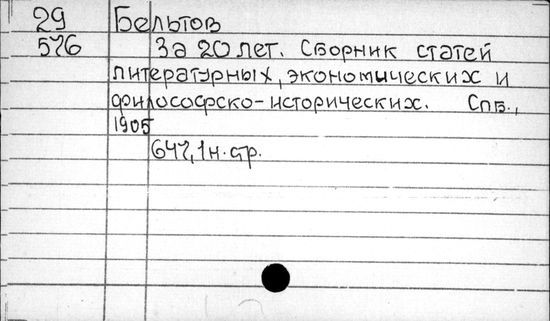 29 Бельтов
576 За 20 лет. Сборник статей
литературных, экономических и
философско-исторических. Спб.,
1905
647, 1 н. стр.